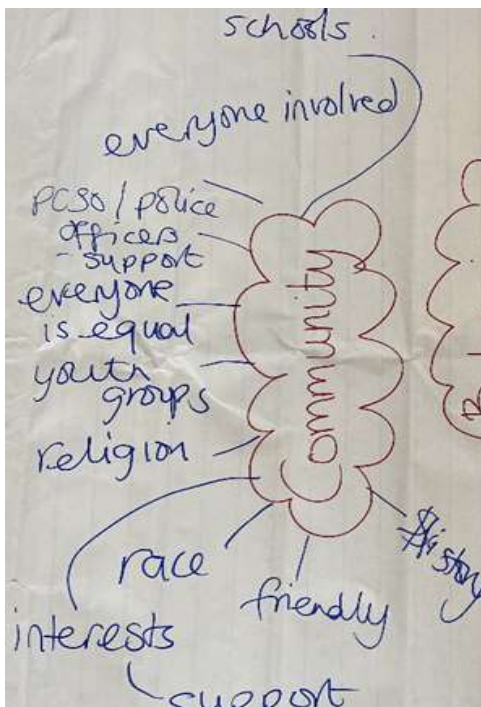 schools.
everyone involved
PCSO / police
officers
- support
everyone
is equal
youth
groups
religion
Community
race
History
friendly
interests
support